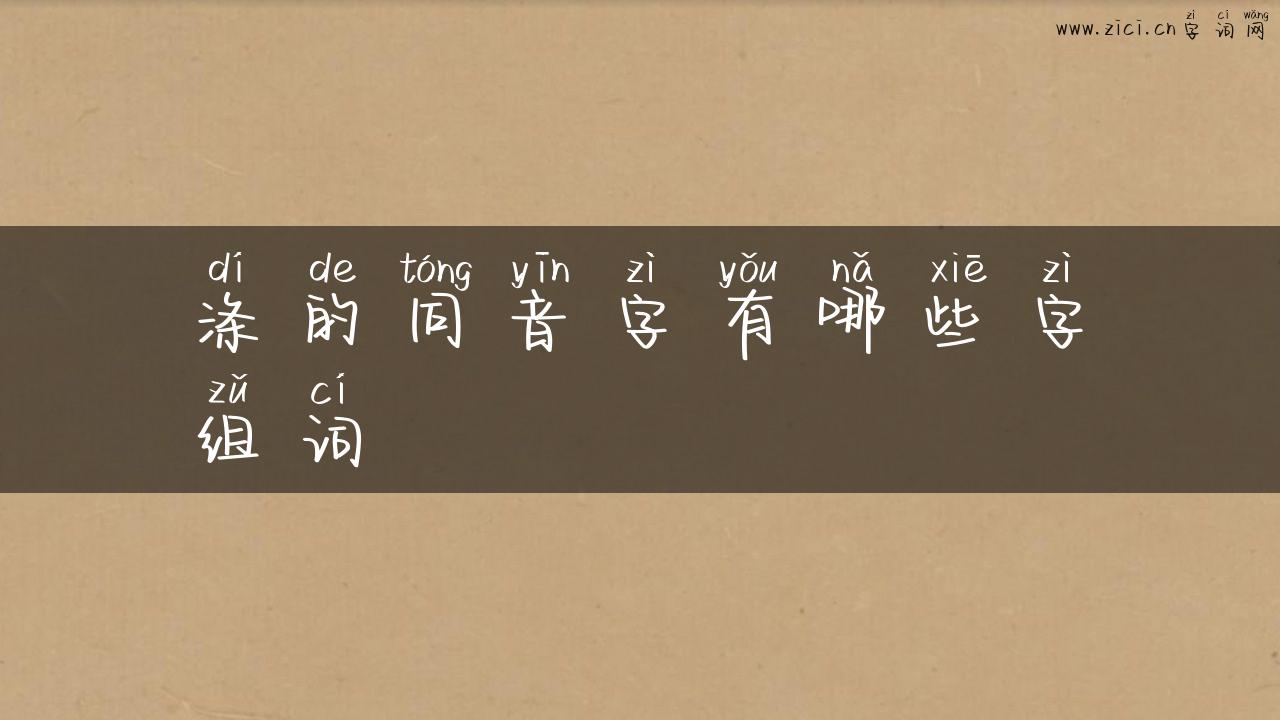 zì cí wǎng
www.zici.cn 字 词 网
dí de tóng yīn zì yǒu nǎ xiē zì
涤 的 同 音 字 有 哪 些 字
zǔ cí
组 词